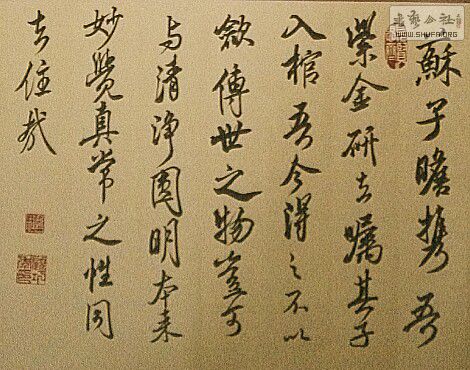 蘇子瞻攜吾
紫金研去囑其子
入棺吾今得之不以
斂傳世之物豈可
与清淨圓明本来
妙覺真常之性同
去住哉
WWW.SHUFA.ORG